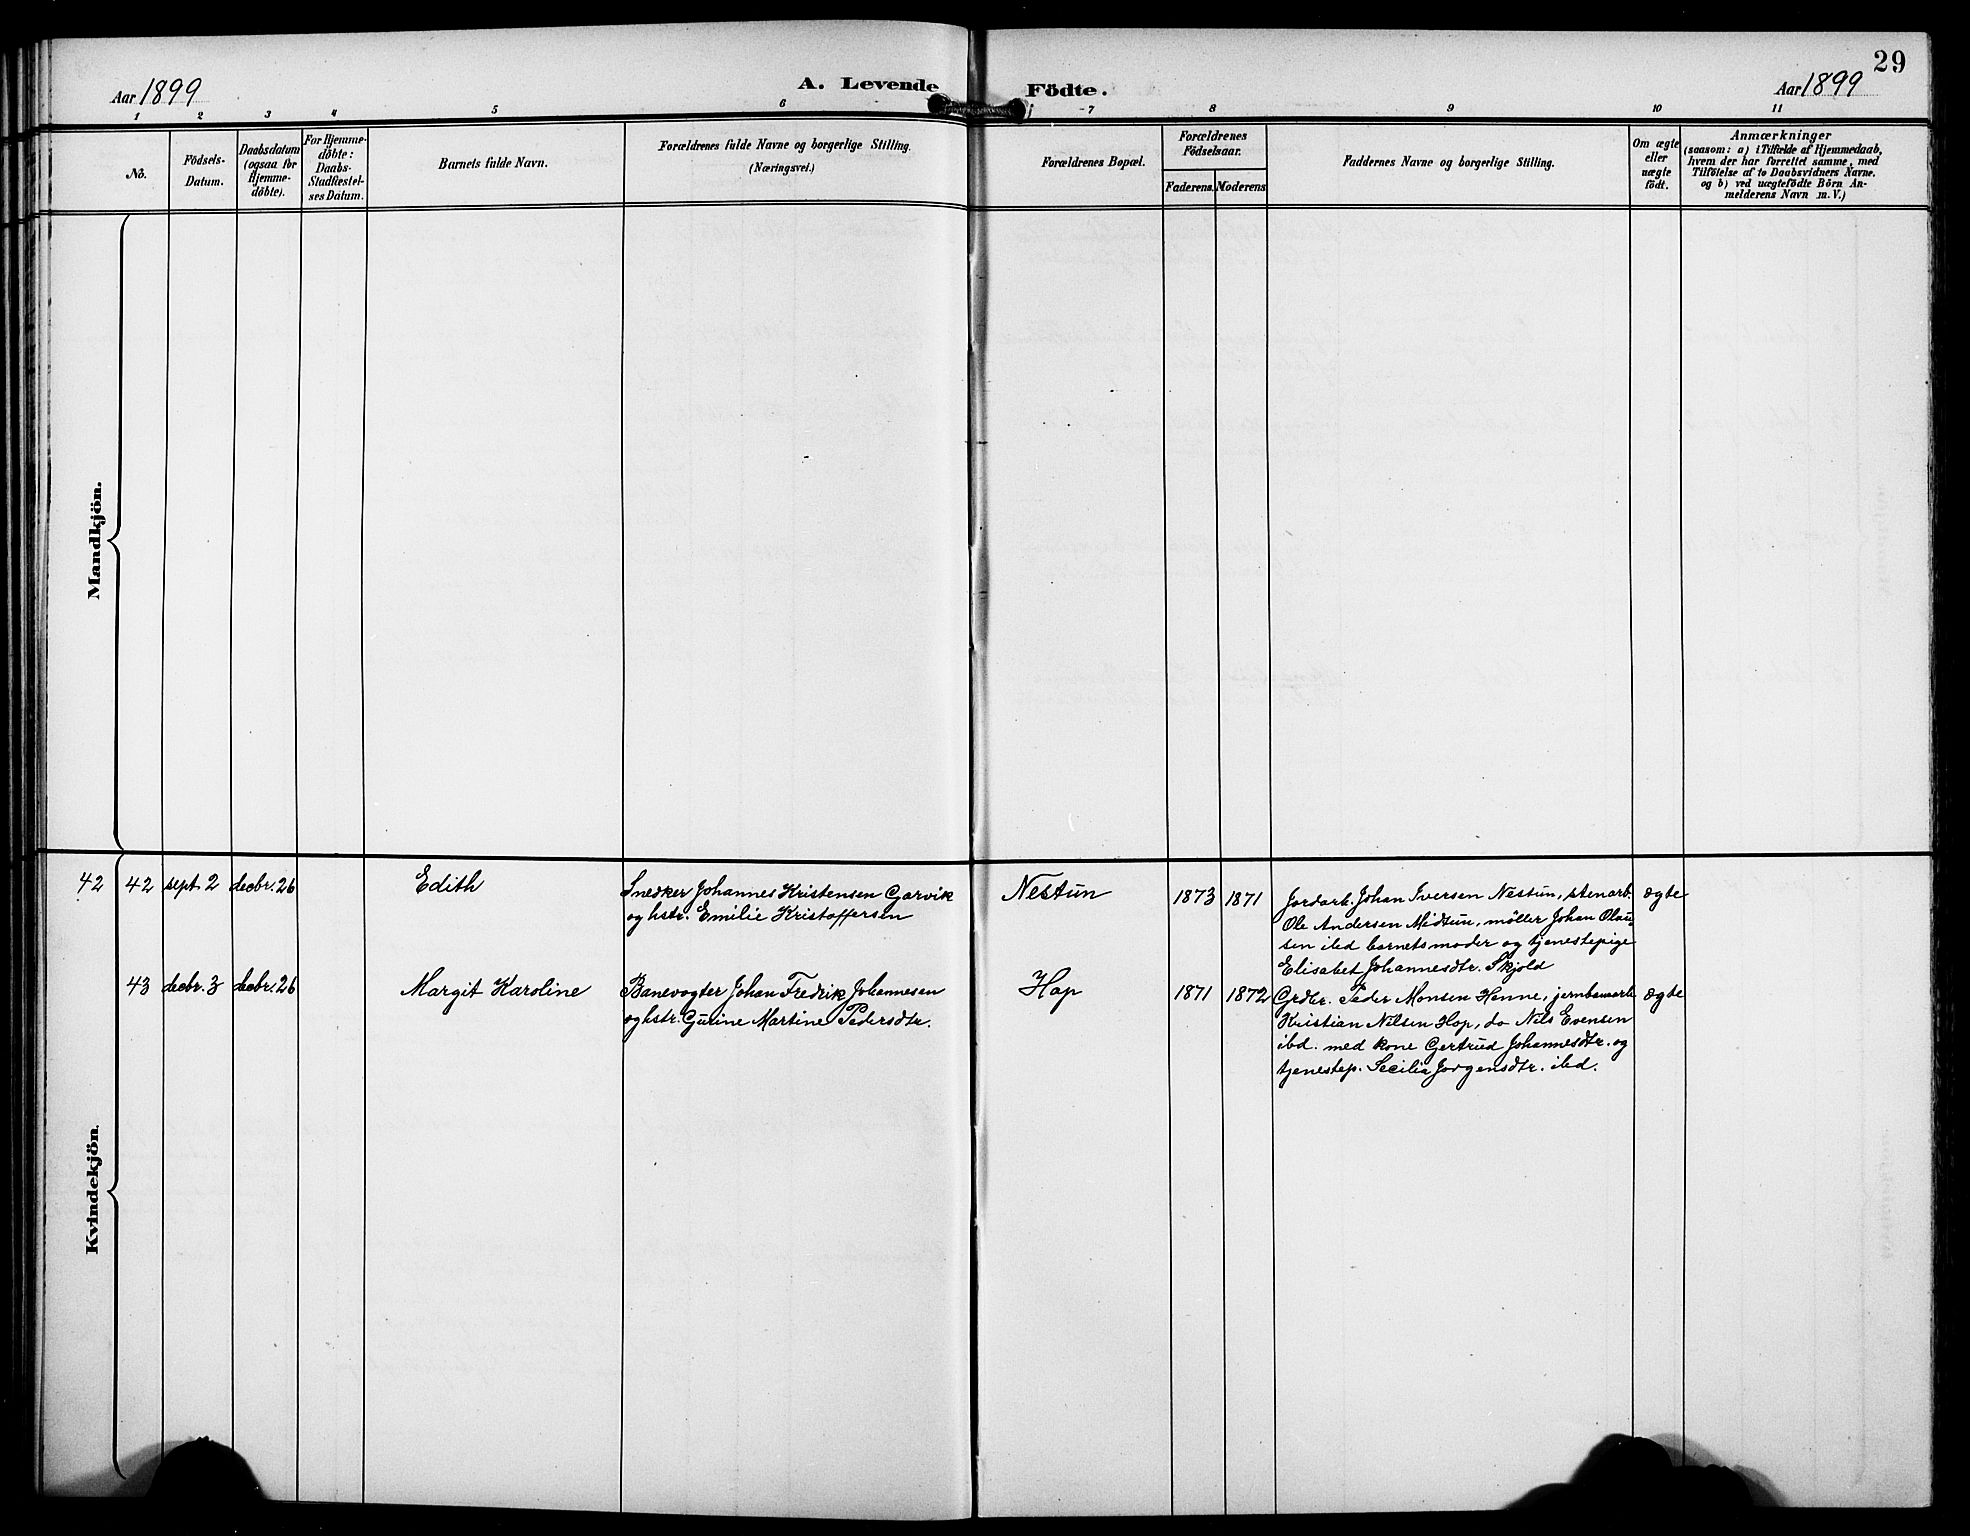 29
Aar 1899
A. Levende Födte.
Aar 1899
1 2 3 4 5 6 7 8 9 10 11
No.
Födsels-
Datum.
Daabsdatum
(ogsaa for
Hjemme-
döbte).
For Hjemme-
döbte:
Daabs-
Stadfæstel-
ses Datum.
Barnets fulde Navn.
Forældrenes fulde Navne og borgerlige Stilling.
(Næringsvei.)
Forældrenes Bopæl.
Forældrenes
Födselsaar.
Faderens. Moderens
Faddernes Navne og borgerlige Stilling.
Om ægte
eller
uægte
födt.
Anmærkninger
(saasom: a) i Tilfælde af Hjemmedaab,
hvem der har forrettet samme, med
Tilföielse af to Daabsvidners Navne.
og b) ved uægtefödte Börn An-
melderens Navn m. V.)
Mandkjön.
Kvindekjön.
42 42 sept. 2 decbr. 26 Edith
Snedker Johannes Kristensen Garvik
og hstr. Emilie Kristoffersen
Nestun 1873 1871
Jordarb. Johan Iversen Nestun, stenarb.
Ole Andersen Midtun, möller Johan Olau-
sen ibd barnets moder og tjenestepige
Elisabet Johannesdtr. Skjold
ægte
43 decbr. 3 decbr. 26 Margit Karoline
Banevogter Johan Fredrik Johannesen
og hstr. Gurine Martine Pedersdtr.
Hop 1871 1872
Grdbr. Peder Monsen Henne, jernbanearb
Kristian Nilsen Hop, do Nils Evensen
ibd. med kone Gertrud Johannesdtr. og
tjenestep. Secilia Jorgensdtr. ibd.
ægte